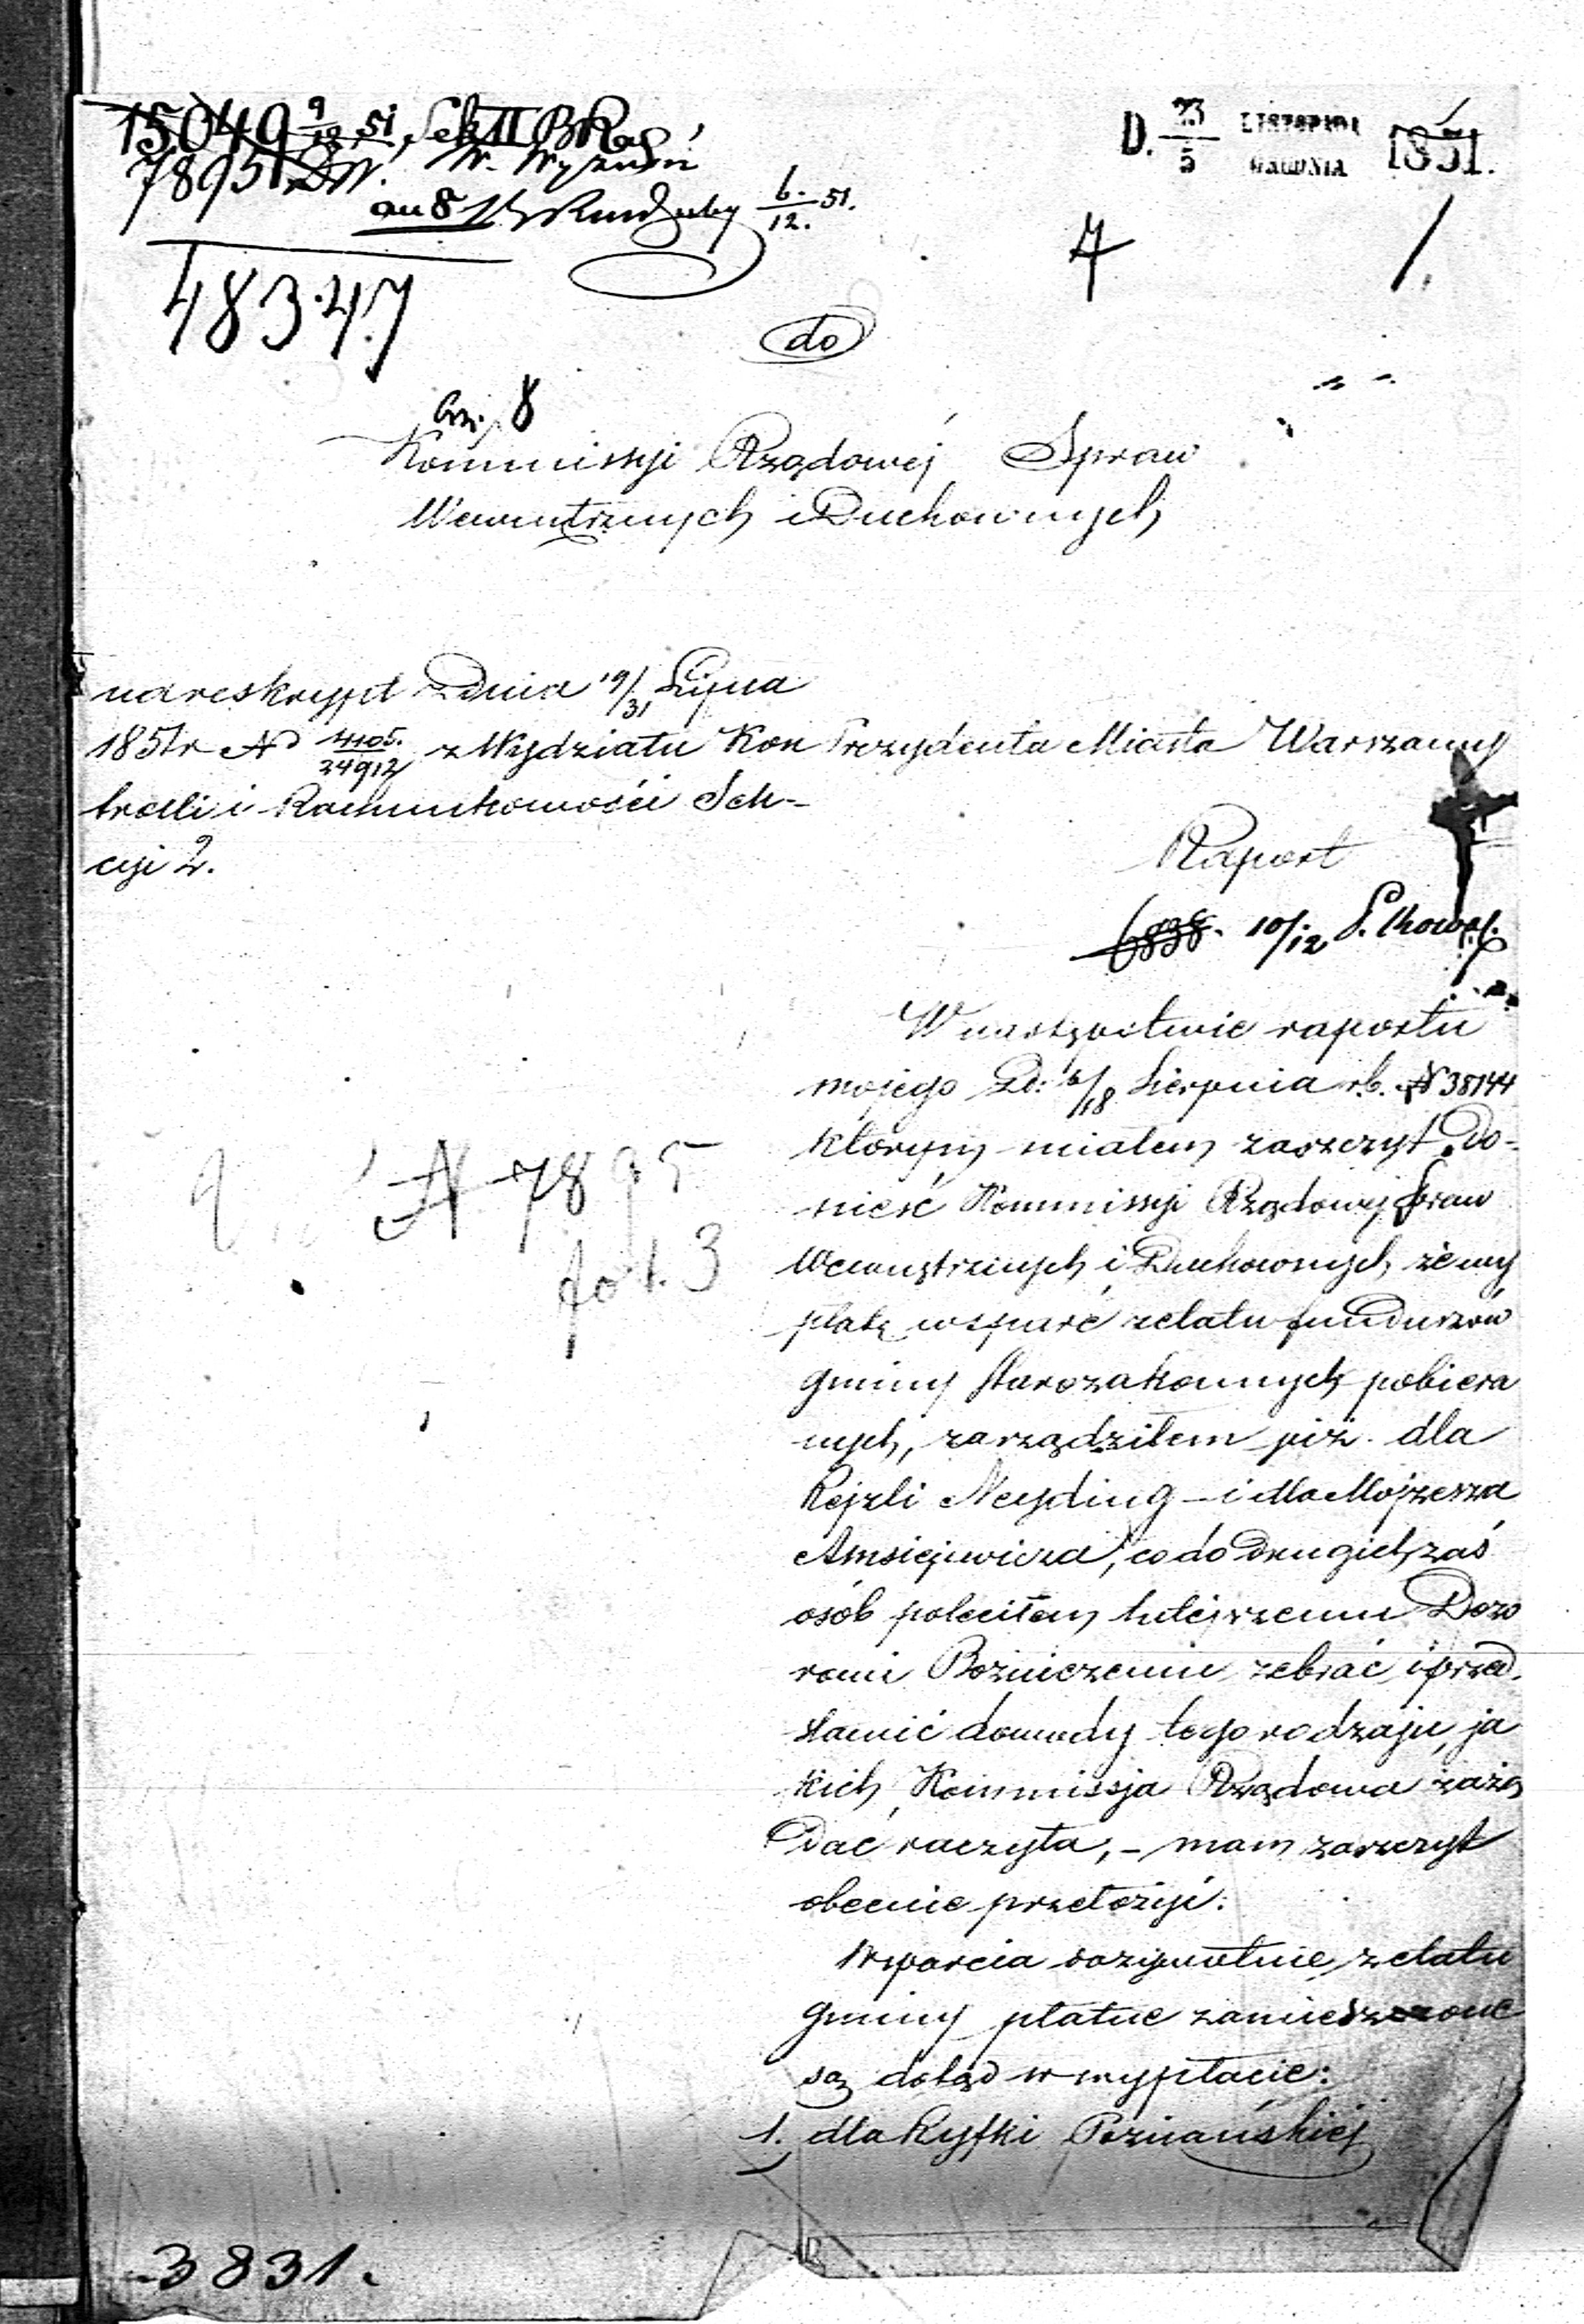 15049 9/12 51 Sek II
7895
6./12. 51.
D. 23/5 LISTOPADA GRUDNIA 1851.
7
1.
48347
do
8
Kommissyi Rządowéj Spraw
Wewnętrznych i Duchownych
na reskrypt z Dnia 19/31 Lipca
1851 r No 4105./34912 z Wydziału Kon
trolli i Rachunkowości Sek-
cyi 2.
Prezydenta Miasta Warszawy
Raport
6838. 10/12
W następstwie raportu
mojego z D: 6/18 Sierpnia r.b. N 38144
którym miałem zaszczyt do-
nieść Kommissyi Rządowej Spraw
Wewnętrznych i Duchownych, że wy
płatę wsparć z etatu funduszów
gminy Starozakonnych pobiera
nych, zarządziłem już dla
Rejzli Neyding – i dla Mojżesza
Amsiejewicza, co do drugich zaś
osób poleciłem tutejszemu Dozo
rowi Bożniczemu zebrać i przed.
stawić dowody tego rodzaju, ja
kich Kommissja Rządowa zażą
dać raczyła, – mam zaszczyt
obecnie przełożyć:
Wsparcia dożywotnie z etatu
gminy płatne zamieszczone
są dotąd w wypłacie:
1. dla Ryfki Poznańskiéj
N 7895
fol. 3
3831.